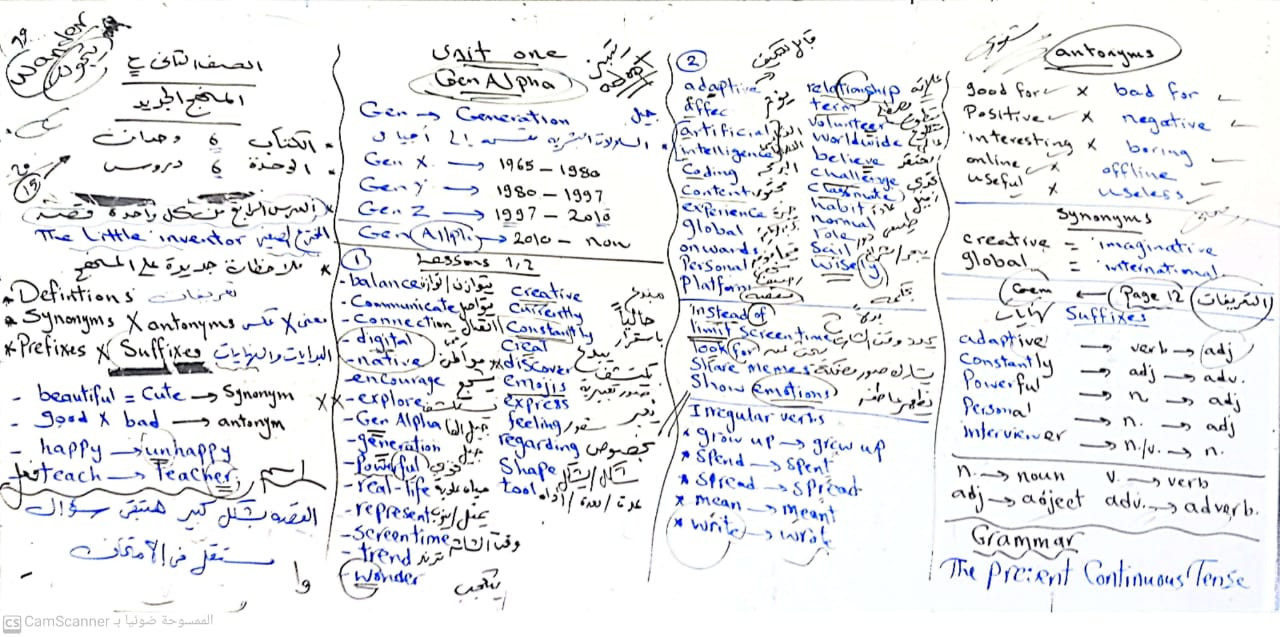 Wander
يتجول
الصف الثاني ع
المنهج الجديد
الكتاب 6 وحدات
الوحدة 6 دروس
15
* الدرس الرابع من شكل واحدة قصة
The Little inventor المخترع الصغير
* ملاحظات جديدة على المنهج
* Defintions تعريفات
* Synonyms X antonyms معنى X عكس
* Prefixes X Suffixes البدايات والنهايات
- beautiful = Cute → Synonym
- good X bad → antonym
- happy → unhappy
- teach → Teacher اسم
فعل
القصه شكل كبير هتبقى سؤال
مستقل فى الأمتحان
Unit one
Gen Alpha
Gen → Generation جيل
Gen X → 1965 - 1980
Gen Y → 1980 - 1997
Gen Z → 1997 - 2010
Gen Alpha → 2010 - now
1 Lessons 1, 2
- balance يتوازن / توازن
- Communicate يتواصل
- Connection اتصال
- digital
- native مواطن
- encourage يشجع
XX - explore يستكشف
- Gen Alpha جيل الفا
- generation جيل
- Powerful قوي
- real-life حياه عادية
- represent يمثل
- screentime وقت الشاشة
- trend ترند
- wonder يتعجب
Creative مبدع
Currently حالياً
Constantly باستمرار
Creat يبدع
discover يكتشف
emojis صور تعبيرية
express يعبر
feeling شعور
regarding بخصوص
Shape شكل / يشكل
tool أداه
2
adaptive قابل للتكيف
effec
artificial
intelligence
Coding
Content محتوى
experience
global
onwards
Personal
Platform
relationship علاقه
term
Volunteer
Worldwide
believe
Challenge
Classmate زميل
habit عادة
normal
role دور
Seil
Wisely بحكمه
Instead of
limit Screen time
look for
Share memes
Show emotions
Irregular verbs
* grow up → grew up
* Spend → Spent
* Spread → Spread
* mean → meant
* write → wrote
antonyms
good for X bad for
Positive X negative
interesting X boring
online X offline
useful X useless
Synonyms
creative = imaginative
global = international
التعريفات ← Page 12 ← Gem
Suffixes نهايات
adaptive → verb → adj
Constantly → adj → adv.
Powerful → n → adj
Personal → n. → adj
interviewer → n./v. → n.
n. → noun v. → verb
adj → adject adv. → adverb.
Grammar
The Present Continuous Tense
CS CamScanner الممسوحة ضوئيا بـ